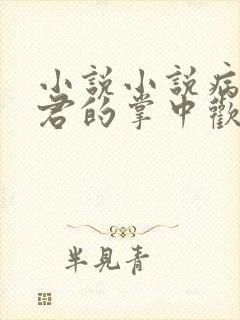 小說小說病
君的掌中歡
半見青